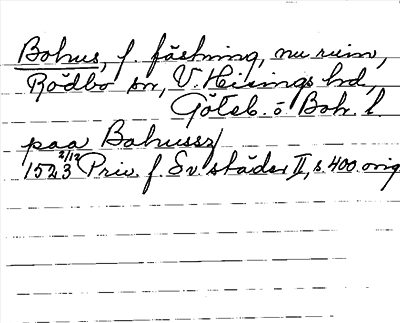 Bohus, f. fästning, nu ruin,
Rödbo sn, V. Hisings hd,
Göteb. o Boh. l.
paa Bahussz
1523 2/12 Priv. f. Sv. städer II, s. 400. orig